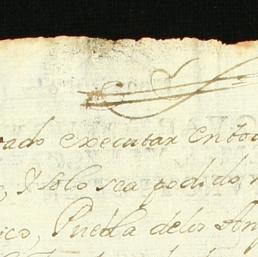 ado executar en to
, y solo sea podido
ico, Puebla delos An